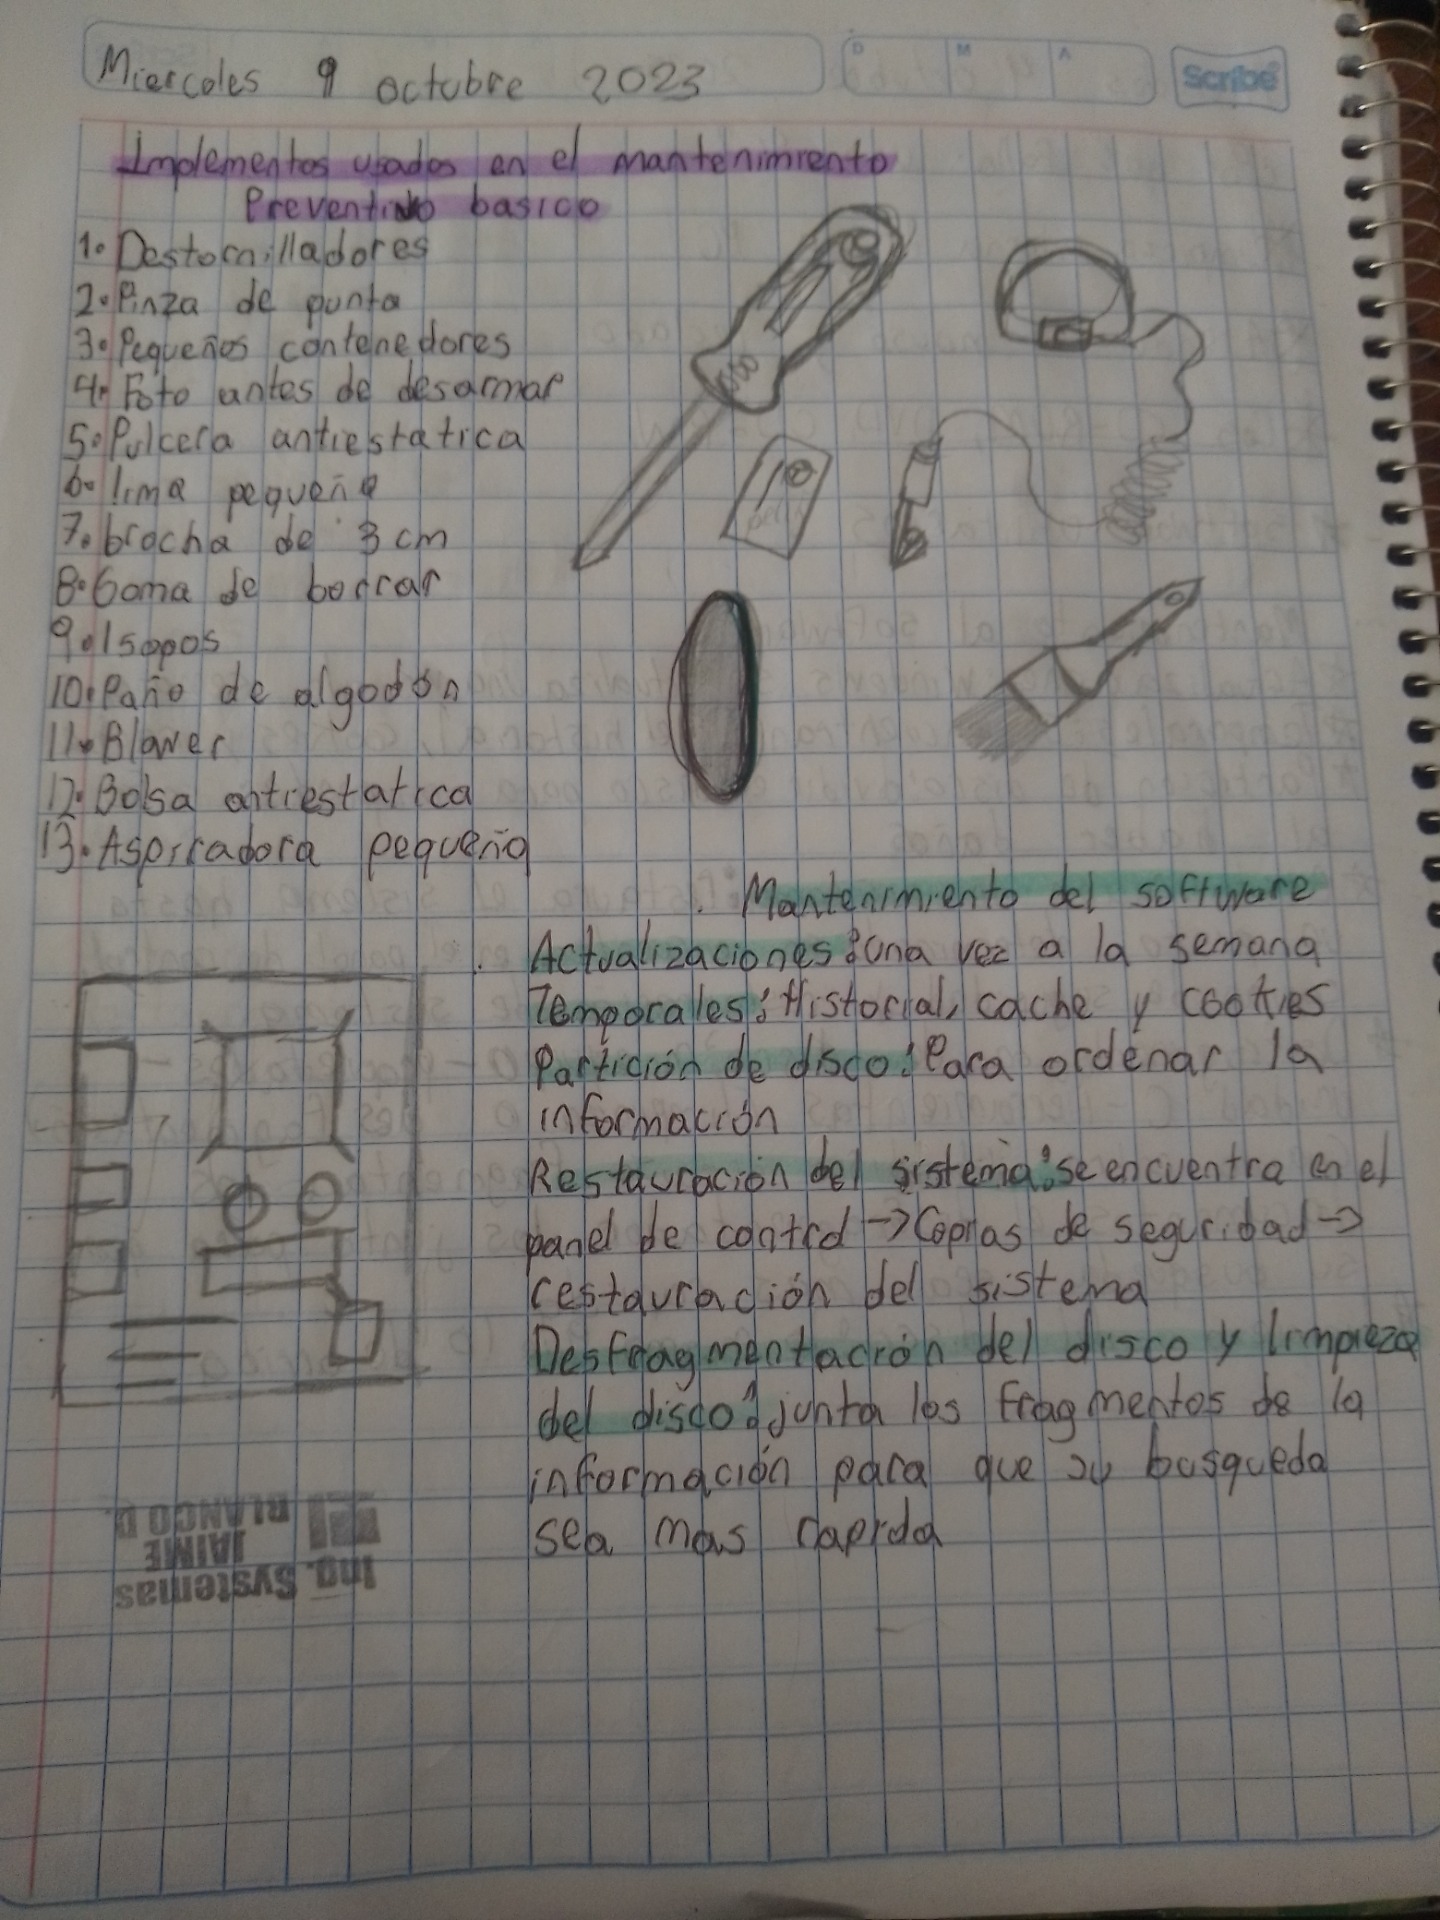 Miercoles 9 octubre 2023
D M A
Scribe
Implementos usados en el mantenimiento
Preventivo basico
1. Destornilladores
2. Pinza de punta
3. Pequeños contenedores
4. Foto antes de desarmar
5. Pulcera antiestatica
6. lima pequeña
7. brocha de 3 cm
8. Goma de borrar
9. Isopos
10. Paño de algodón
11. Blawer
12. Bolsa antiestatica
13. Aspiradora pequeña
Mantenimiento del software
Actualizaciones: una vez a la semana
Temporales: Historial, cache y cookies
Partición de disco: Para ordenar la
información
Restauración del sistema: se encuentra en el
panel de control -> Copias de seguridad ->
restauración del sistema
Desfragmentación del disco y limpieza
del disco: junta los fragmentos de la
información para que su busqueda
sea mas rapida
Ing. Systemas
JAIME
BLANCO D.